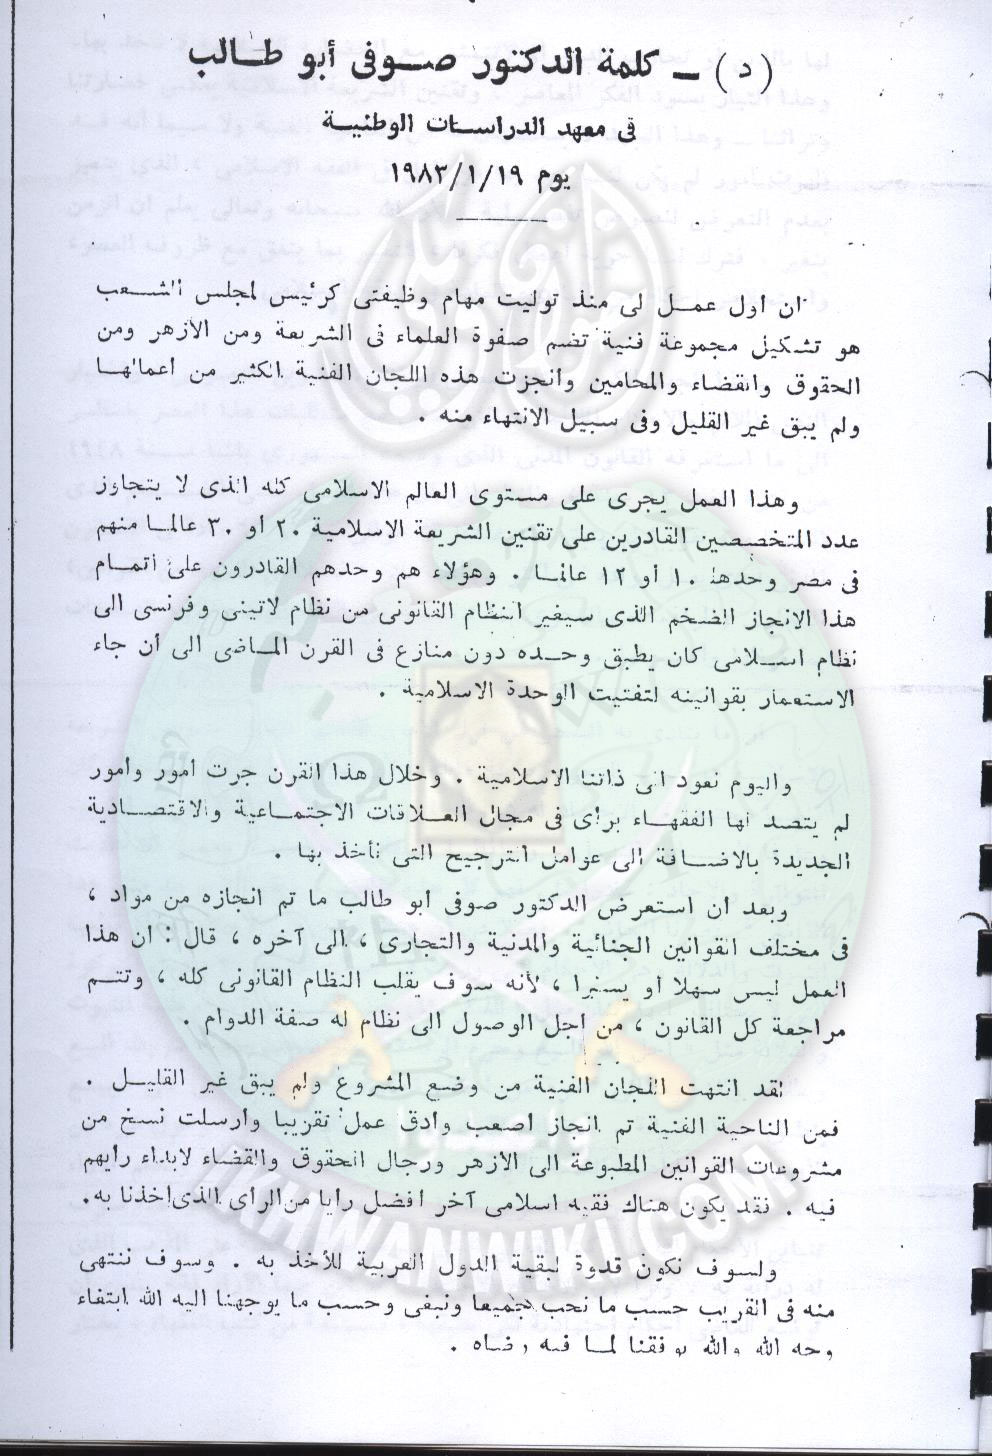 (د) ــ كلمة الدكتور صوفى أبو طالب
فى معهد الدراسات الوطنية
يوم ١٩٨٣/١/١٩
ان اول عمل لى منذ توليت مهام وظيفتى كرئيس لمجلس الشعب
هو تشكيل مجموعة فنية تضم صفوة العلماء فى الشريعة ومن الازهر ومن
الحقوق والقضاء والمحامين وأنجزت هذه اللجان الفنية الكثير من أعمالها
ولم يبق غير القليل وفى سبيل الانتهاء منه .
وهذا العمل يجرى على مستوى العالم الاسلامى كله الذى لا يتجاوز
عدد المتخصصين القادرين على تقنين الشريعة الاسلامية ٢٠ أو ٣٠ عالما منهم
فى مصر وحدها ١٠ أو ١٢ عالما . وهؤلاء هم وحدهم القادرون على اتمام
هذا الانجاز الضخم الذى سيغير النظام القانونى من نظام لاتينى وفرنسى الى
نظام اسلامى كان يطبق وحده دون منازع فى القرن الماضى الى أن جاء
الاستعمار بقوانينه لتفتيت الوحدة الاسلامية .
واليوم نعود الى ذاتنا الاسلامية . وخلال هذا القرن جرت أمور وأمور
لم يتصد لها الفقهاء برأى فى مجال العلاقات الاجتماعية والاقتصادية
الجديدة بالاضافة الى عوامل الترجيح التى نأخذ بها .
وبعد ان استعرض الدكتور صوفى أبو طالب ما تم انجازه من مواد ،
فى مختلف القوانين الجنائية والمدنية والتجارى ، الى آخره ، قال : ان هذا
العمل ليس سهلا أو يسيرا ، لأنه سوف يقلب النظام القانونى كله ، وتتم
مراجعة كل القانون ، من أجل الوصول الى نظام له صفة الدوام .
لقد انتهت اللجان الفنية من وضع المشروع ولم يبق غير القليل .
فمن الناحية الفنية تم انجاز أصعب وأدق عمل تقريبا وأرسلت نسخ من
مشروعات القوانين المطبوعة الى الازهر ورجال الحقوق والقضاء لابداء رأيهم
فيه . فقد يكون هناك فقيه اسلامى آخر أفضل رأيا من الرأى الذى اخذنا به.
ولسوف نكون قدوة لبقية الدول العربية للأخذ به . وسوف ننتهى
منه فى القريب حسب ما نحب جميعا ونبغى وحسب ما يوجهنا اليه الله ابتغاء
وجه الله والله يوفقنا لما فيه رضاه .
IKHWANWIKI.COM